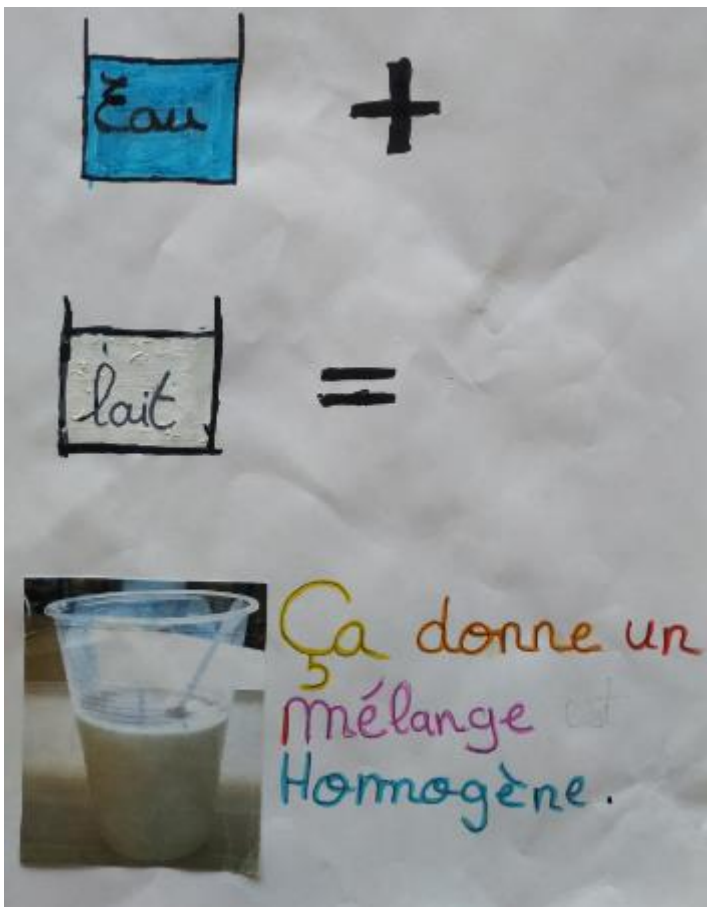 Eau +
lait =
Ça donne un
mélange est
Homogène.